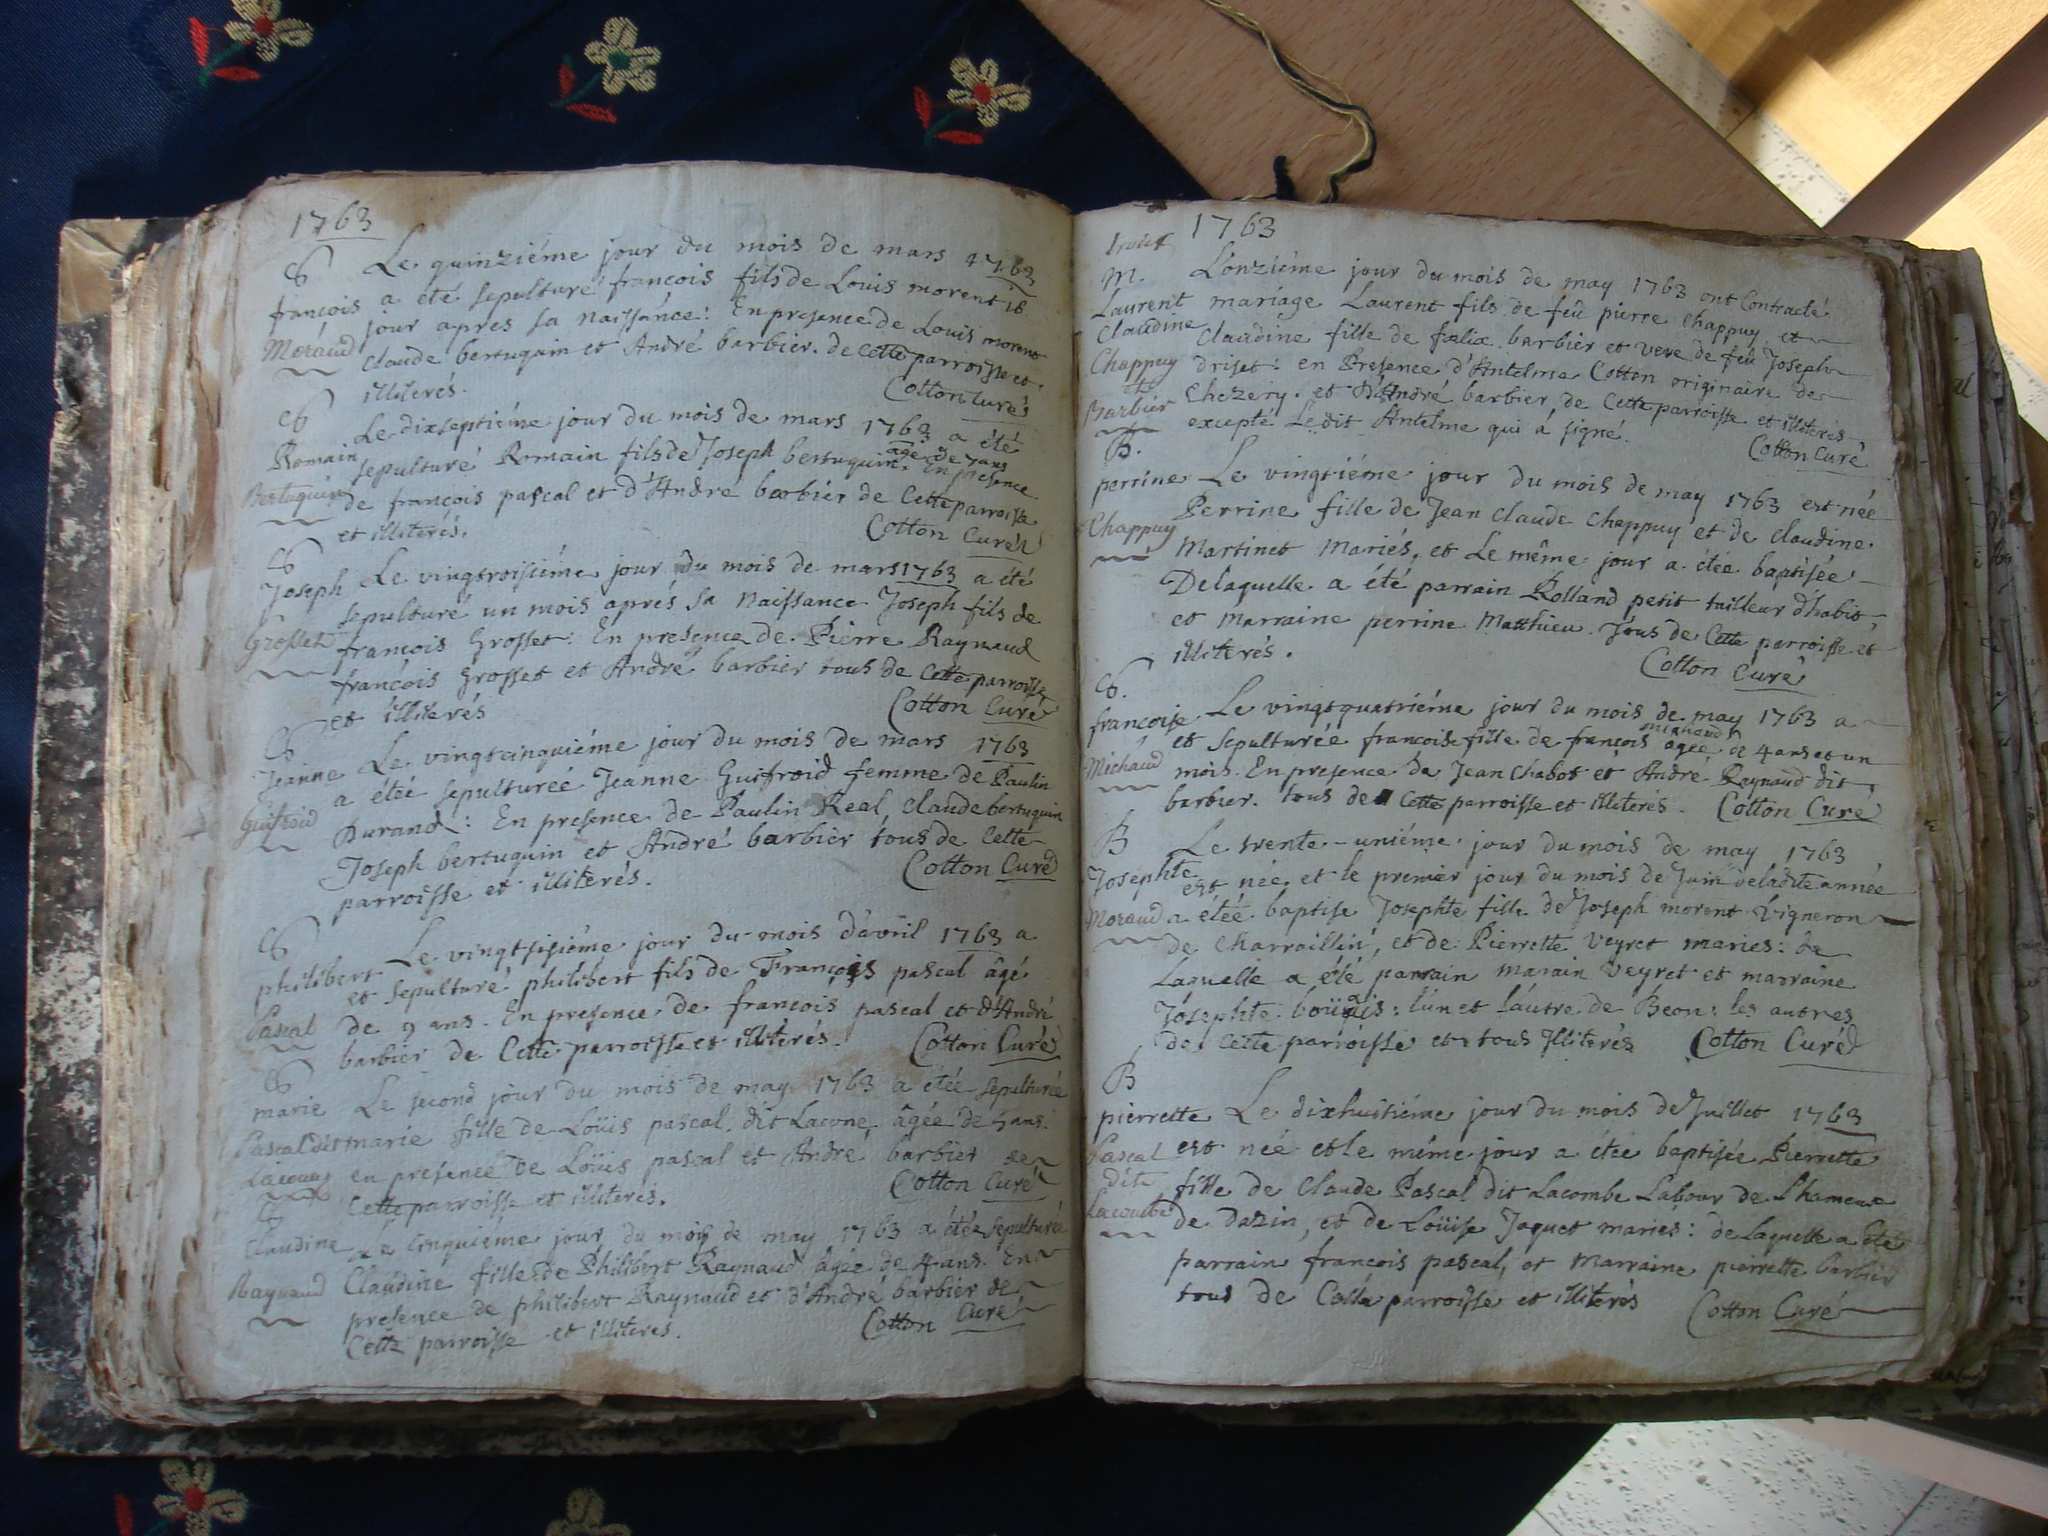 1763
S Le quinziéme jour du mois de mars 1763
françois a été sepulturé françois fils de Louis morent 18
Moraud jour apres sa Naissance: En presence de Louis morent
Claude bertuquin et André barbier de Cette parroisse et
illiterés. Cotton Curé
S Le dixseptiéme jour du mois de mars 1763 a été
Romain sepulturé Romain fils de Joseph bertuquin âgé de 7 ans En presence
Bertuquin de françois pascal et d'André barbier de Cette parroisse
et illiterés. Cotton Curé
S
Joseph Le vingtroisiéme jour du mois de mars 1763 a été
sepulturé un mois aprés sa Naissance Joseph fils de
Grosset françois Grosset: En presence de Pierre Raynaud
françois Grosset et André barbier tous de Cette parroisse
et illiterés Cotton Curé
S
Jeanne Le vingtcinquiéme jour du mois de mars 1763
a étée sepulturée Jeanne Guifroid femme de Paulin
Guifroid Durand: En presence de Paulin Real, Claude bertuquin
Joseph bertuquin et André barbier tous de Cette
parroisse et illiterés. Cotton Curé
S
philibert Le vingtsisiéme jour du mois d'avril 1763 a
et sepulturé philibert fils de François pascal âgé
Pascal de 9 ans. En presence de françois pascal et d'André
barbier de Cette parroisse et illiterés. Cotton Curé
S
marie Le second jour du mois de may 1763 a étée sepulturée
Pascal dit marie fille de Loüis pascal dit Lacone, âgée de 5 ans.
en presence de Loüis pascal et André barbier de
Cette parroisse et illiterés. Cotton Curé
S
Claudine Le Cinquiéme jour du mois de may 1763 a étée sepulturée
Raynaud Claudine fille de Philibert Raynaud âgée de 4 ans. En
presence de philibert Raynaud et d'André barbier de
Cette parroisse et illiterés. Cotton Curé
1763
M. L'onziéme jour du mois de may 1763 ont Contracté
Laurent mariage Laurent fils de feû pierre Chappuy et
Claudine Claudine fille de fœlix barbier et veve de feû Joseph
Chappuy driset: en Presence d'Antelme Cotton originaire de
et Chezery. et d'André barbier de Cette parroisse et illiterés
Barbier excepté Ledit Antelme qui a signé. Cotton Curé
B.
perrine Le vingtiéme jour du mois de may 1763 est née
Chappuy Perrine fille de Jean Claude Chappuy et de Claudine
Martinet Mariés, et Le même jour a étée baptisée
De laquelle a été parrain Rolland petit tailleur d'habit,
et marraine perrine Matthieu. Tous de Cette parroisse et
illiterés. Cotton Curé
S.
françoise Le vingtquatriéme jour du mois de may 1763 a
et sepulturée francoise fille de françois michaud agée de 4 ans et un
Michaud mois. En presence de Jean Chabot et André Raynaud dit
barbier. tous de Cette parroisse et illiterés. Cotton Curé
B Le trente-uniéme jour du mois de may 1763
Josephte est née, et le premier jour du mois de Juin de ladite année
Moraud a étée baptise Josephte fille de Joseph morent Vigneron
de Charraillin, et de Pierrette Veyret mariés: de
Laquelle a été parrain marain Veyret et marraine
Josephte boüais: l'un et l'autre de Beon: les autres
de Cette parroisse et tous Illiterés Cotton Curé
B
pierrette Le dixhuitiéme jour du mois de Juillet 1763
Pascal est née et le même jour a étée baptisée Pierrette
dite fille de Claude Pascal dit Lacombe Labour de L'hameau
Lacombe de dazin, et de Loüise Jaquet mariés: de Laquelle a été
parrain francois pascal, et Marraine pierrette barbier
tous de Cette parroisse et illiterés Cotton Curé